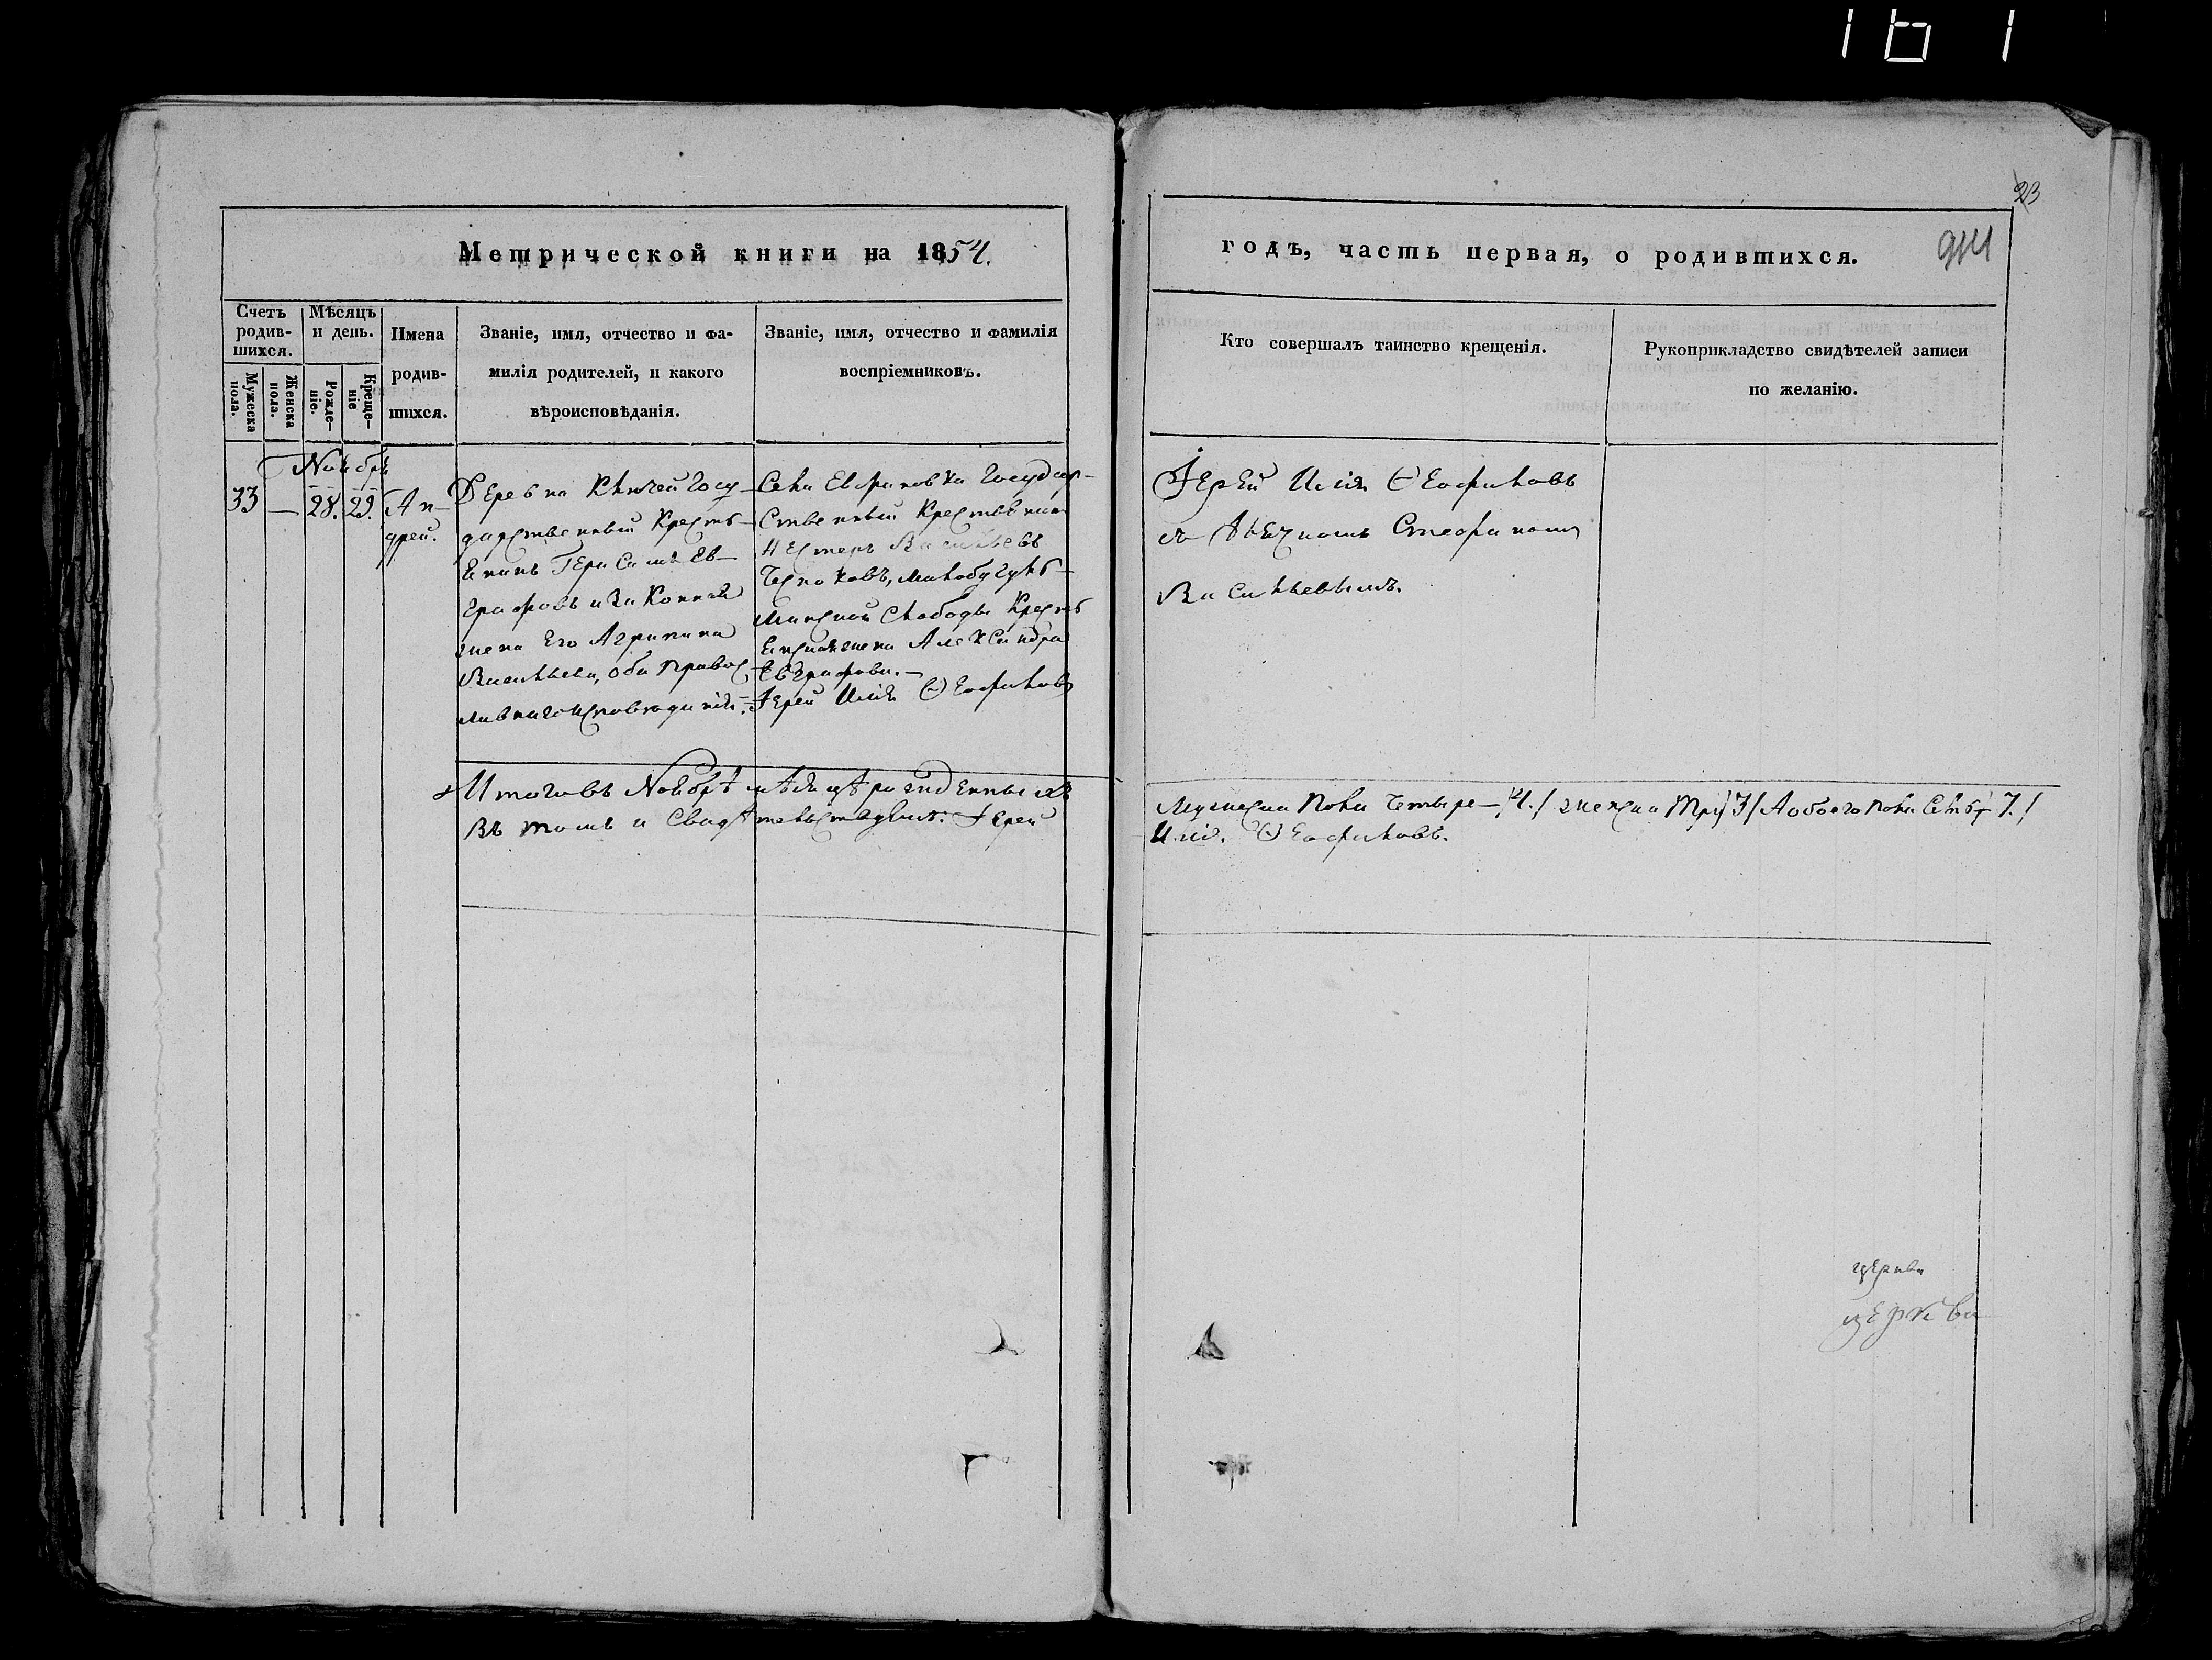 161
23
914
Метрической книги на 1854.
годъ, часть первая, о родившихся.
Счетъ родив-шихся.
Мужеска пола.
Женска пола.
Мѣсяцъ и день.
Рожде-ніе.
Креще-ніе
Имена
родив-
шихся.
Званіе, имя, отчество и фа-
милія родителей, и какого
вѣроисповѣданія.
Званіе, имя, отчество и фамилія
воспріемниковъ.
Кто совершалъ таинство крещенія.
Рукоприкладство свидѣтелей записи
по желанію.
Ноября
33 — 28. 29. Ан-
дрей.
Деревна Ключей Госу-
дарственный Кресть-
янинъ Герасимъ Ев-
графовъ и Законная
жена Его Агрипина
Васильева, оба Правос-
лавнагоисповѣданія.
Села Евфановка Государ-
Ственный Крестьянинъ
Нестеръ Васильевъ
Чесноковъ,
Слободы Кресть
янская жена Александра
Евграфова. —
Іерей Илія Ѳеофиловъ
Іерей Илія Ѳеофиловъ
съ Стефаномъ
Васильевымъ.
Итоговъ Ноябрѣ мѣсяцѣ рожденныхъ
Въ томъ и Свидѣтельствуемъ: Іерей
Мужеска Пола Четыре — /4./ женска Три /3/ А обоего пола Семь 7./
Илія Ѳеофиловъ.
церкви
церкви